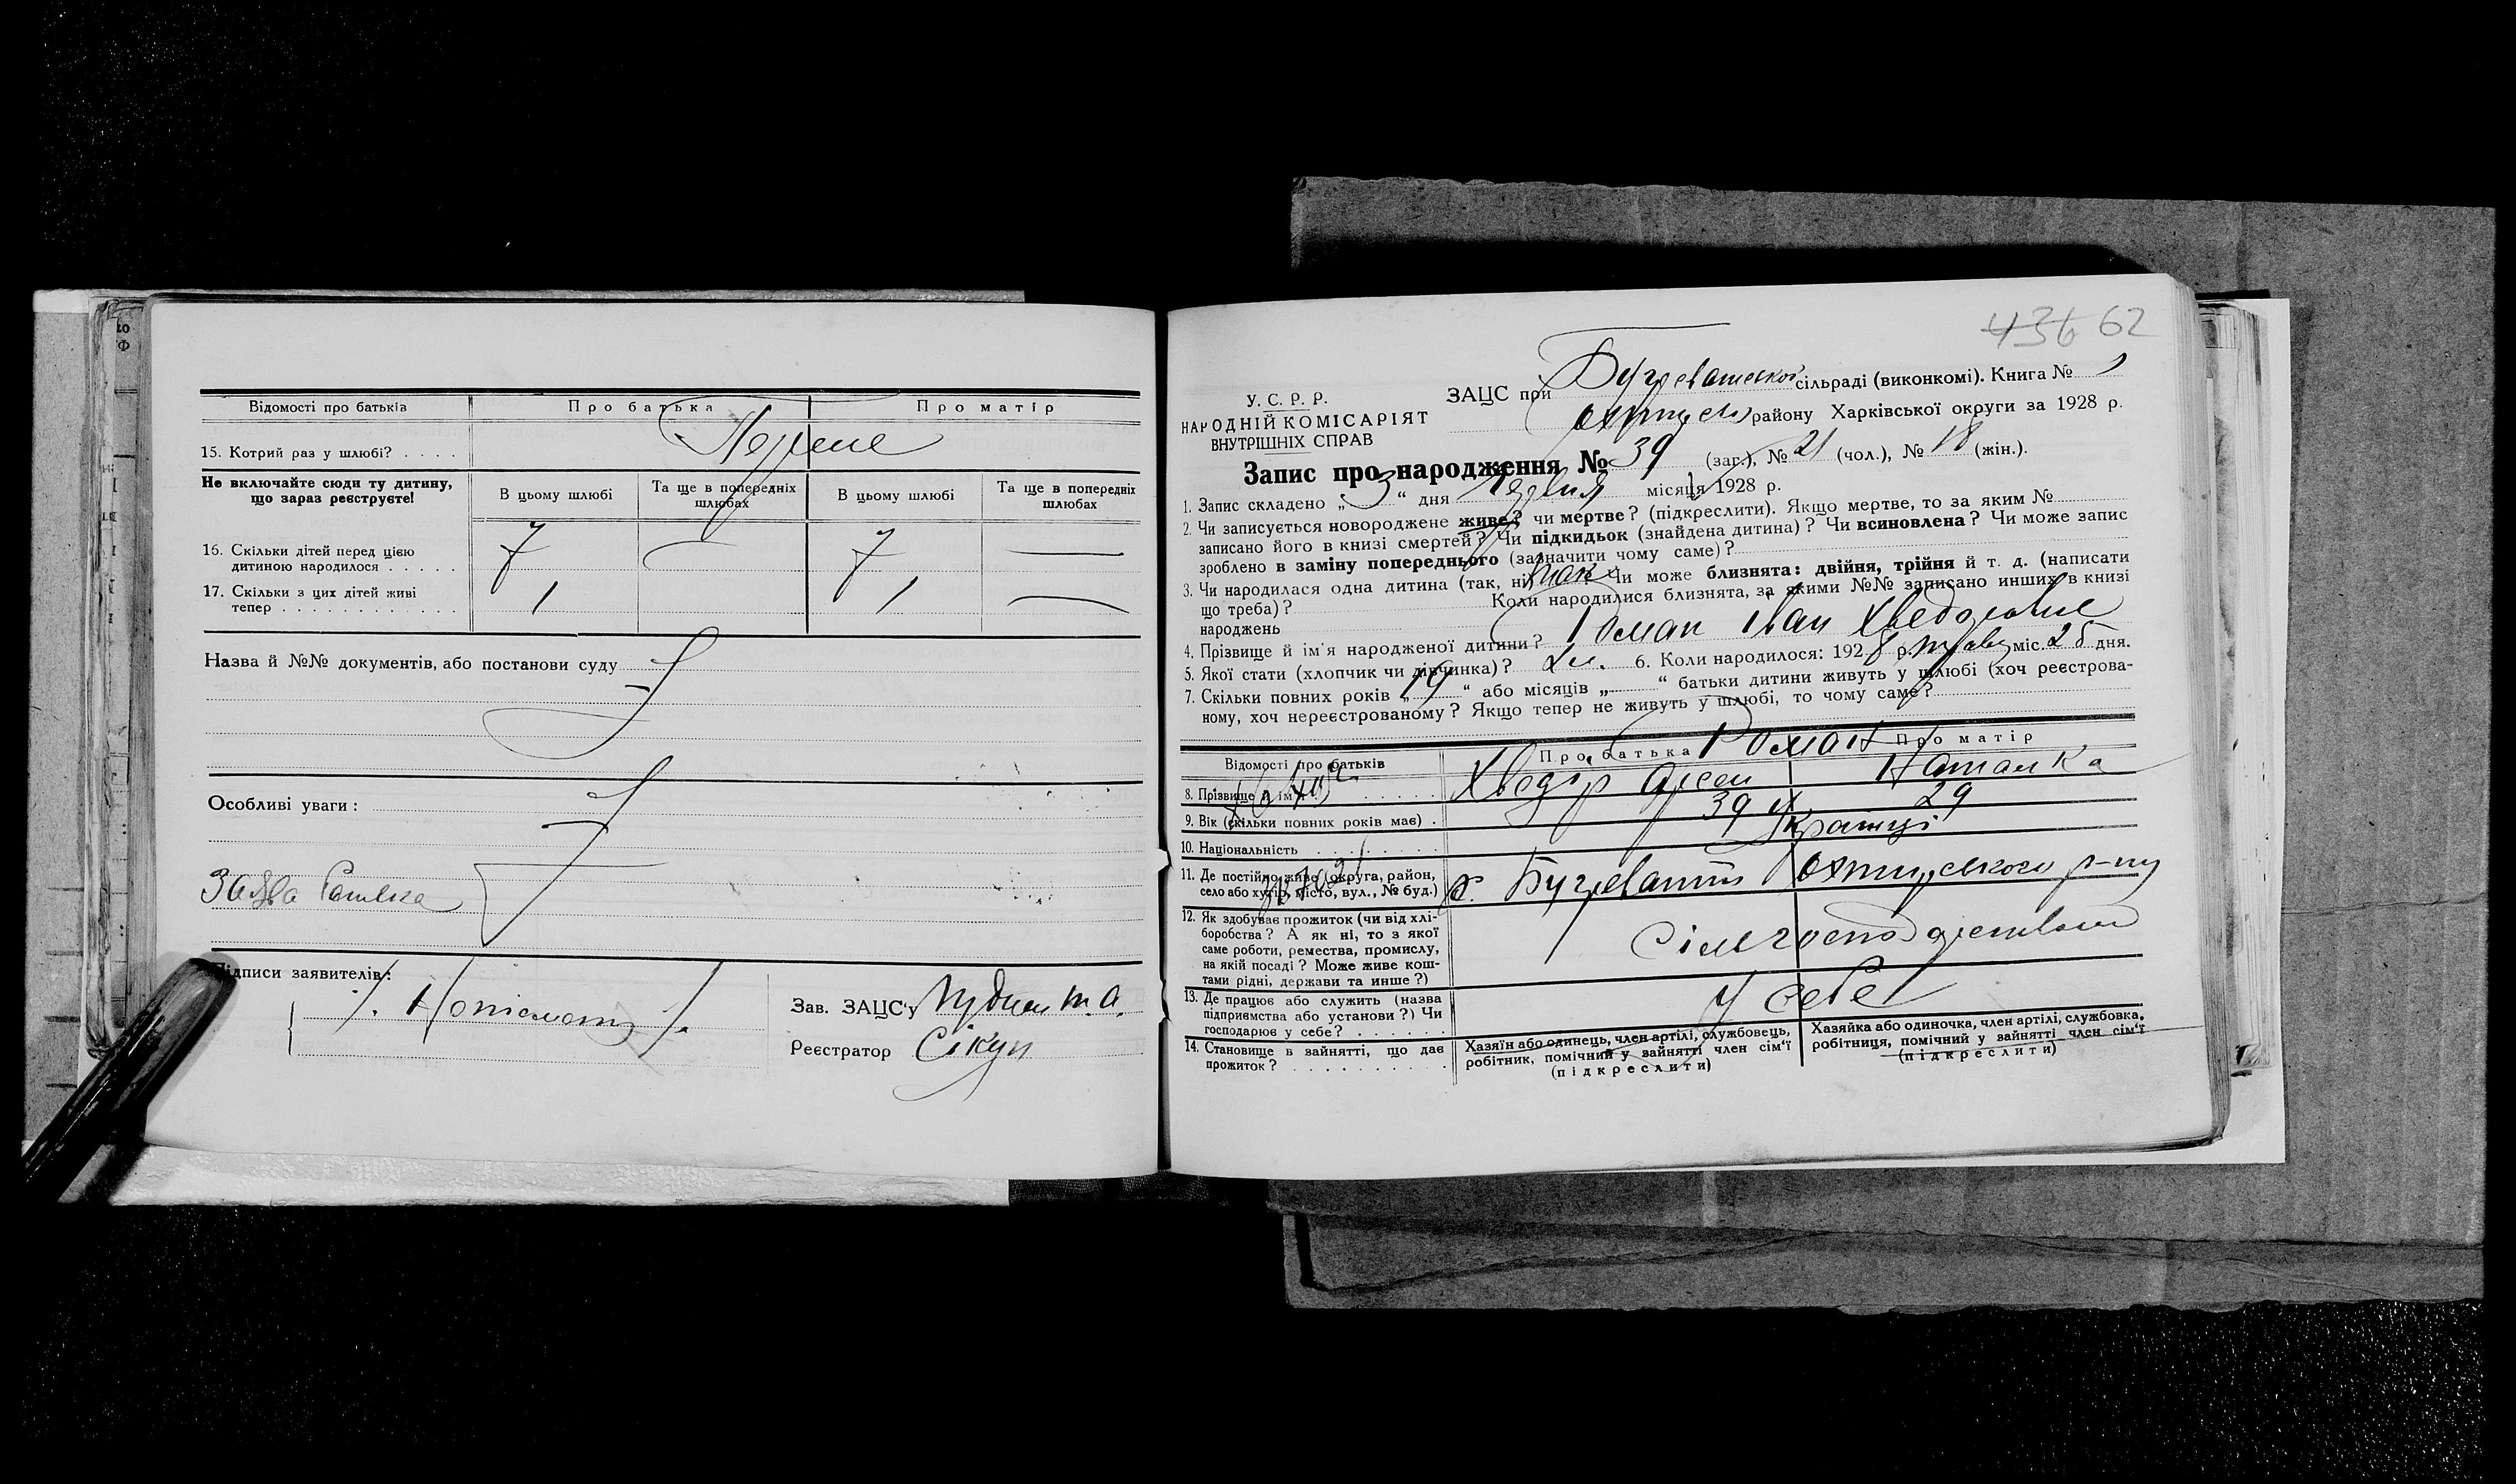 Відомості про батьків Про батька Про матір
15. Котрий раз у шлюбі? . . . . Перше
Не включайте сюди ту дитину, що зараз реєструєте!
В цьому шлюбі Та ще в попередніх шлюбах В цьому шлюбі Та ще в попередніх шлюбах
16. Скільки дітей перед цією
дитиною народилося . . . . . 7 — 7 —
17. Скільки з цих дітей живі
тепер . . . . . . . . . . . . 1 1 —
Назва й №№ документів, або постанови суду
Особливі уваги:
Заява батька
Підписи заявителів:
Неписьменний
Зав. ЗАЦС'у
Реєстратор Сікун
436 62
У. С. Р. Р.
НАРОДНІЙ КОМІСАРІЯТ
ВНУТРІШНІХ СПРАВ
ЗАЦС при Бугреватській сільраді (виконкомі). Книга № 1
Охтирськ району Харківської округи за 1928 р.
Запис про народження № 39 (заг.), № 21 (чол.), № 18 (жін.).
1. Запис складено „3“ дня Червня місяця 1928 р.
2. Чи записується новороджене живе? чи мертве? (підкреслити). Якщо мертве, то за яким №
записано його в книзі смертей? Чи підкидьок (знайдена дитина)? Чи всиновлена? Чи може запис
зроблено в заміну попереднього (зазначити чому саме)?
3. Чи народилася одна дитина (так, ні) так Чи може близнята: двійня, трійня й т. д. (написати
що треба)? Коли народилися близнята, за якими №№ записано инших в книзі
народжень
4. Прізвище й ім'я народженої дитини? Роман Іван Хведорович
5. Якої стати (хлопчик чи дівчинка)? хл. 6. Коли народилося: 1928 р. трав. міс. 25 дня.
7. Скільки повних років „19“ або місяців „ “ батьки дитини живуть у шлюбі (хоч реєстрова-
ному, хоч нереєстрованому? Якщо тепер не живуть у шлюбі, то чому саме?
Відомості про батьків Про батька Роман Про матір
8. Прізвище й ім'я . . . . . Хведір Наталка
9. Вік (скільки повних років має) . 39 29
10. Національність . . . . . . . . Українці
11. Де постійно живе (округа, район,
село або хутір, місто, вул., № буд.) с. Бугревати Охтирського р-ну
12. Як здобуває прожиток (чи від хлі-
боробства? А як ні, то з якої
саме роботи, ремества, промислу,
на якій посаді? Може живе кош-
тами рідні, держави та инше?) Сільгосподарством
13. Де працює або служить (назва
підприємства або установи?) Чи
господарює у себе? . . . . . . У себе
14. Становище в зайнятті, що дає
прожиток? . . . . . . . . . .
Хазяїн або одинець, член артілі, службовець,
робітник, помічний у зайнятті член сім'ї
(підкреслити)
Хазяйка або одиночка, член артілі, службовка,
робітниця, помічний у зайнятті член сім'ї
(підкреслити)